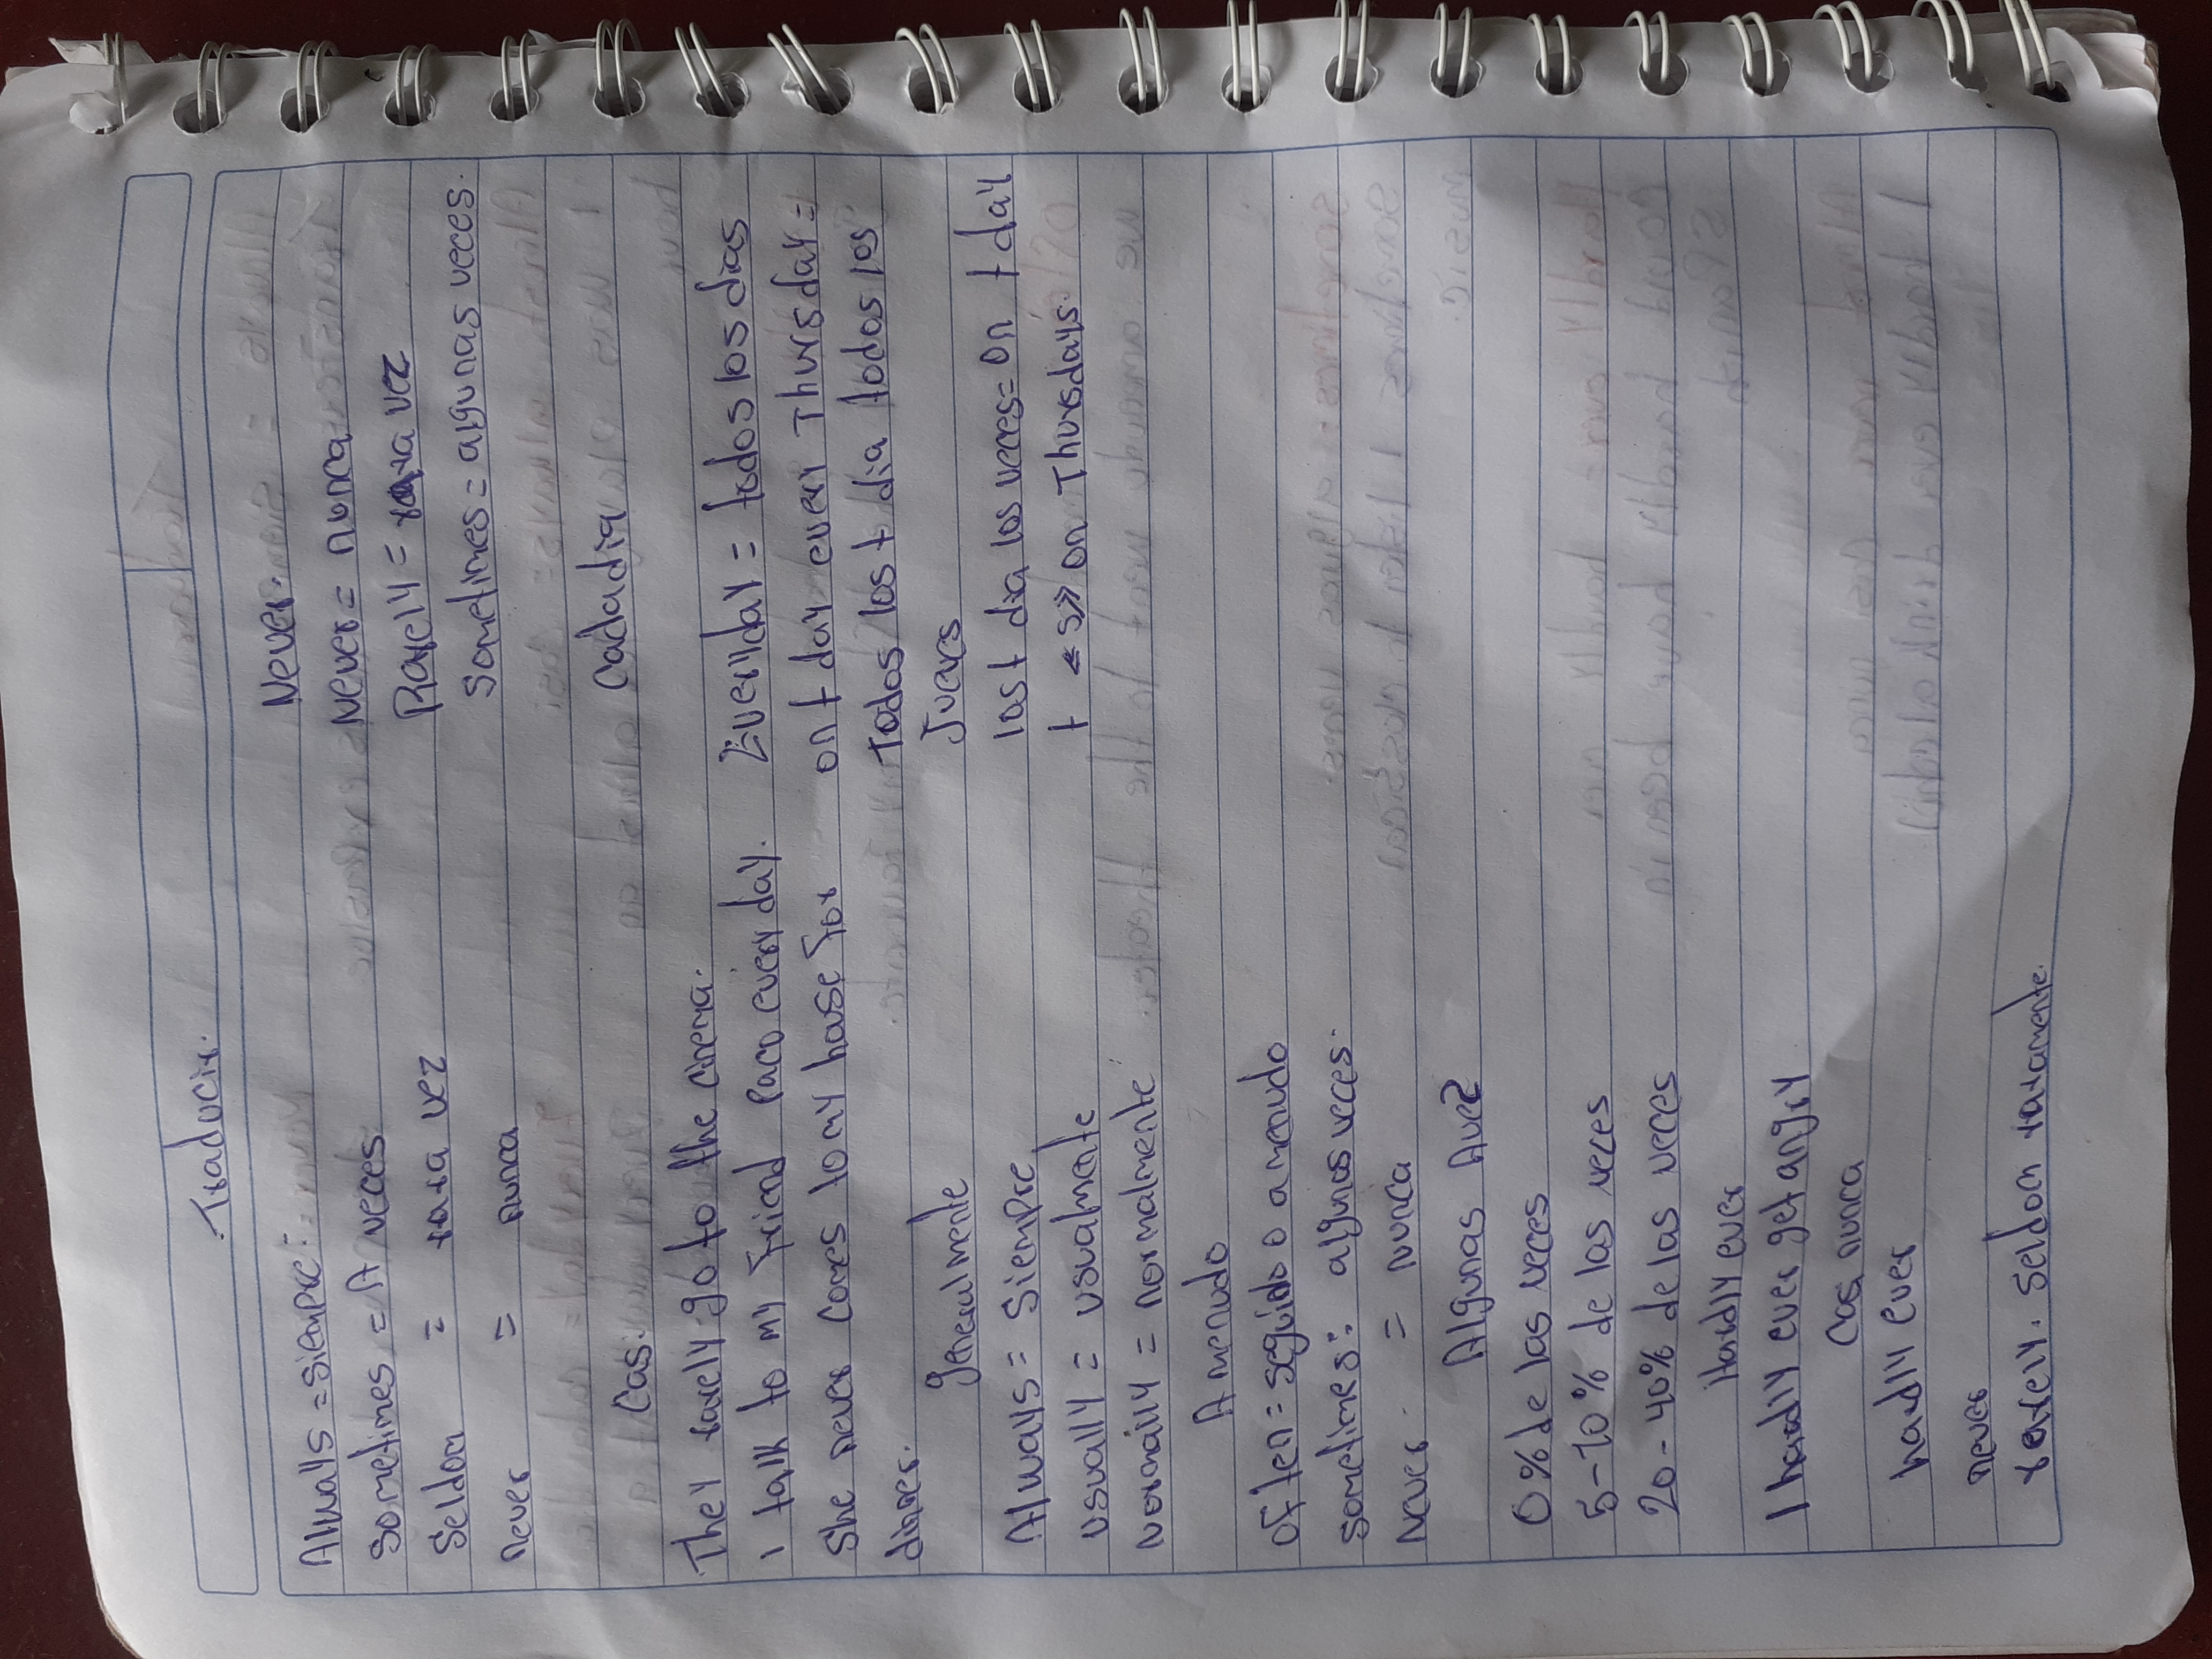 Traducir.
Alwalls = siempre.
Sometimes = A veces
Seldon = rara vez
never = nunca
Casi
They rarely go to the cinema.
I talk to my friend Paco every day.
She never comes to my hose for
dinner.
generalmente
Always = siempre
usually = usualmente
normally = normalmente
A menudo
often = seguido o a menudo
sometimes: algunas veces.
never = nunca
Algunas Avez
0% de las veces
5-10% de las veces
20-40% de las veces
Hardly ever
I hardly ever get angry
Casi nunca
hardly ever
never
rarely. seldon raramente.
Never.
Never = nunca
Rarely = rara vez
Sometimes = algunas veces.
cada dia
Everyday = todos los dias
on t day every Thursday =
Todos los t dia todos los
Jueves
los t dia los veces = on t day
t <s> on Thursdays.